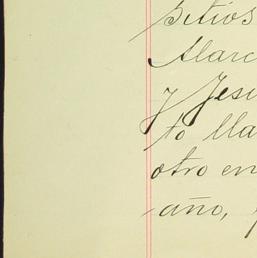 Sitios
Alarc
y Jesu
to lla
otro en
año,